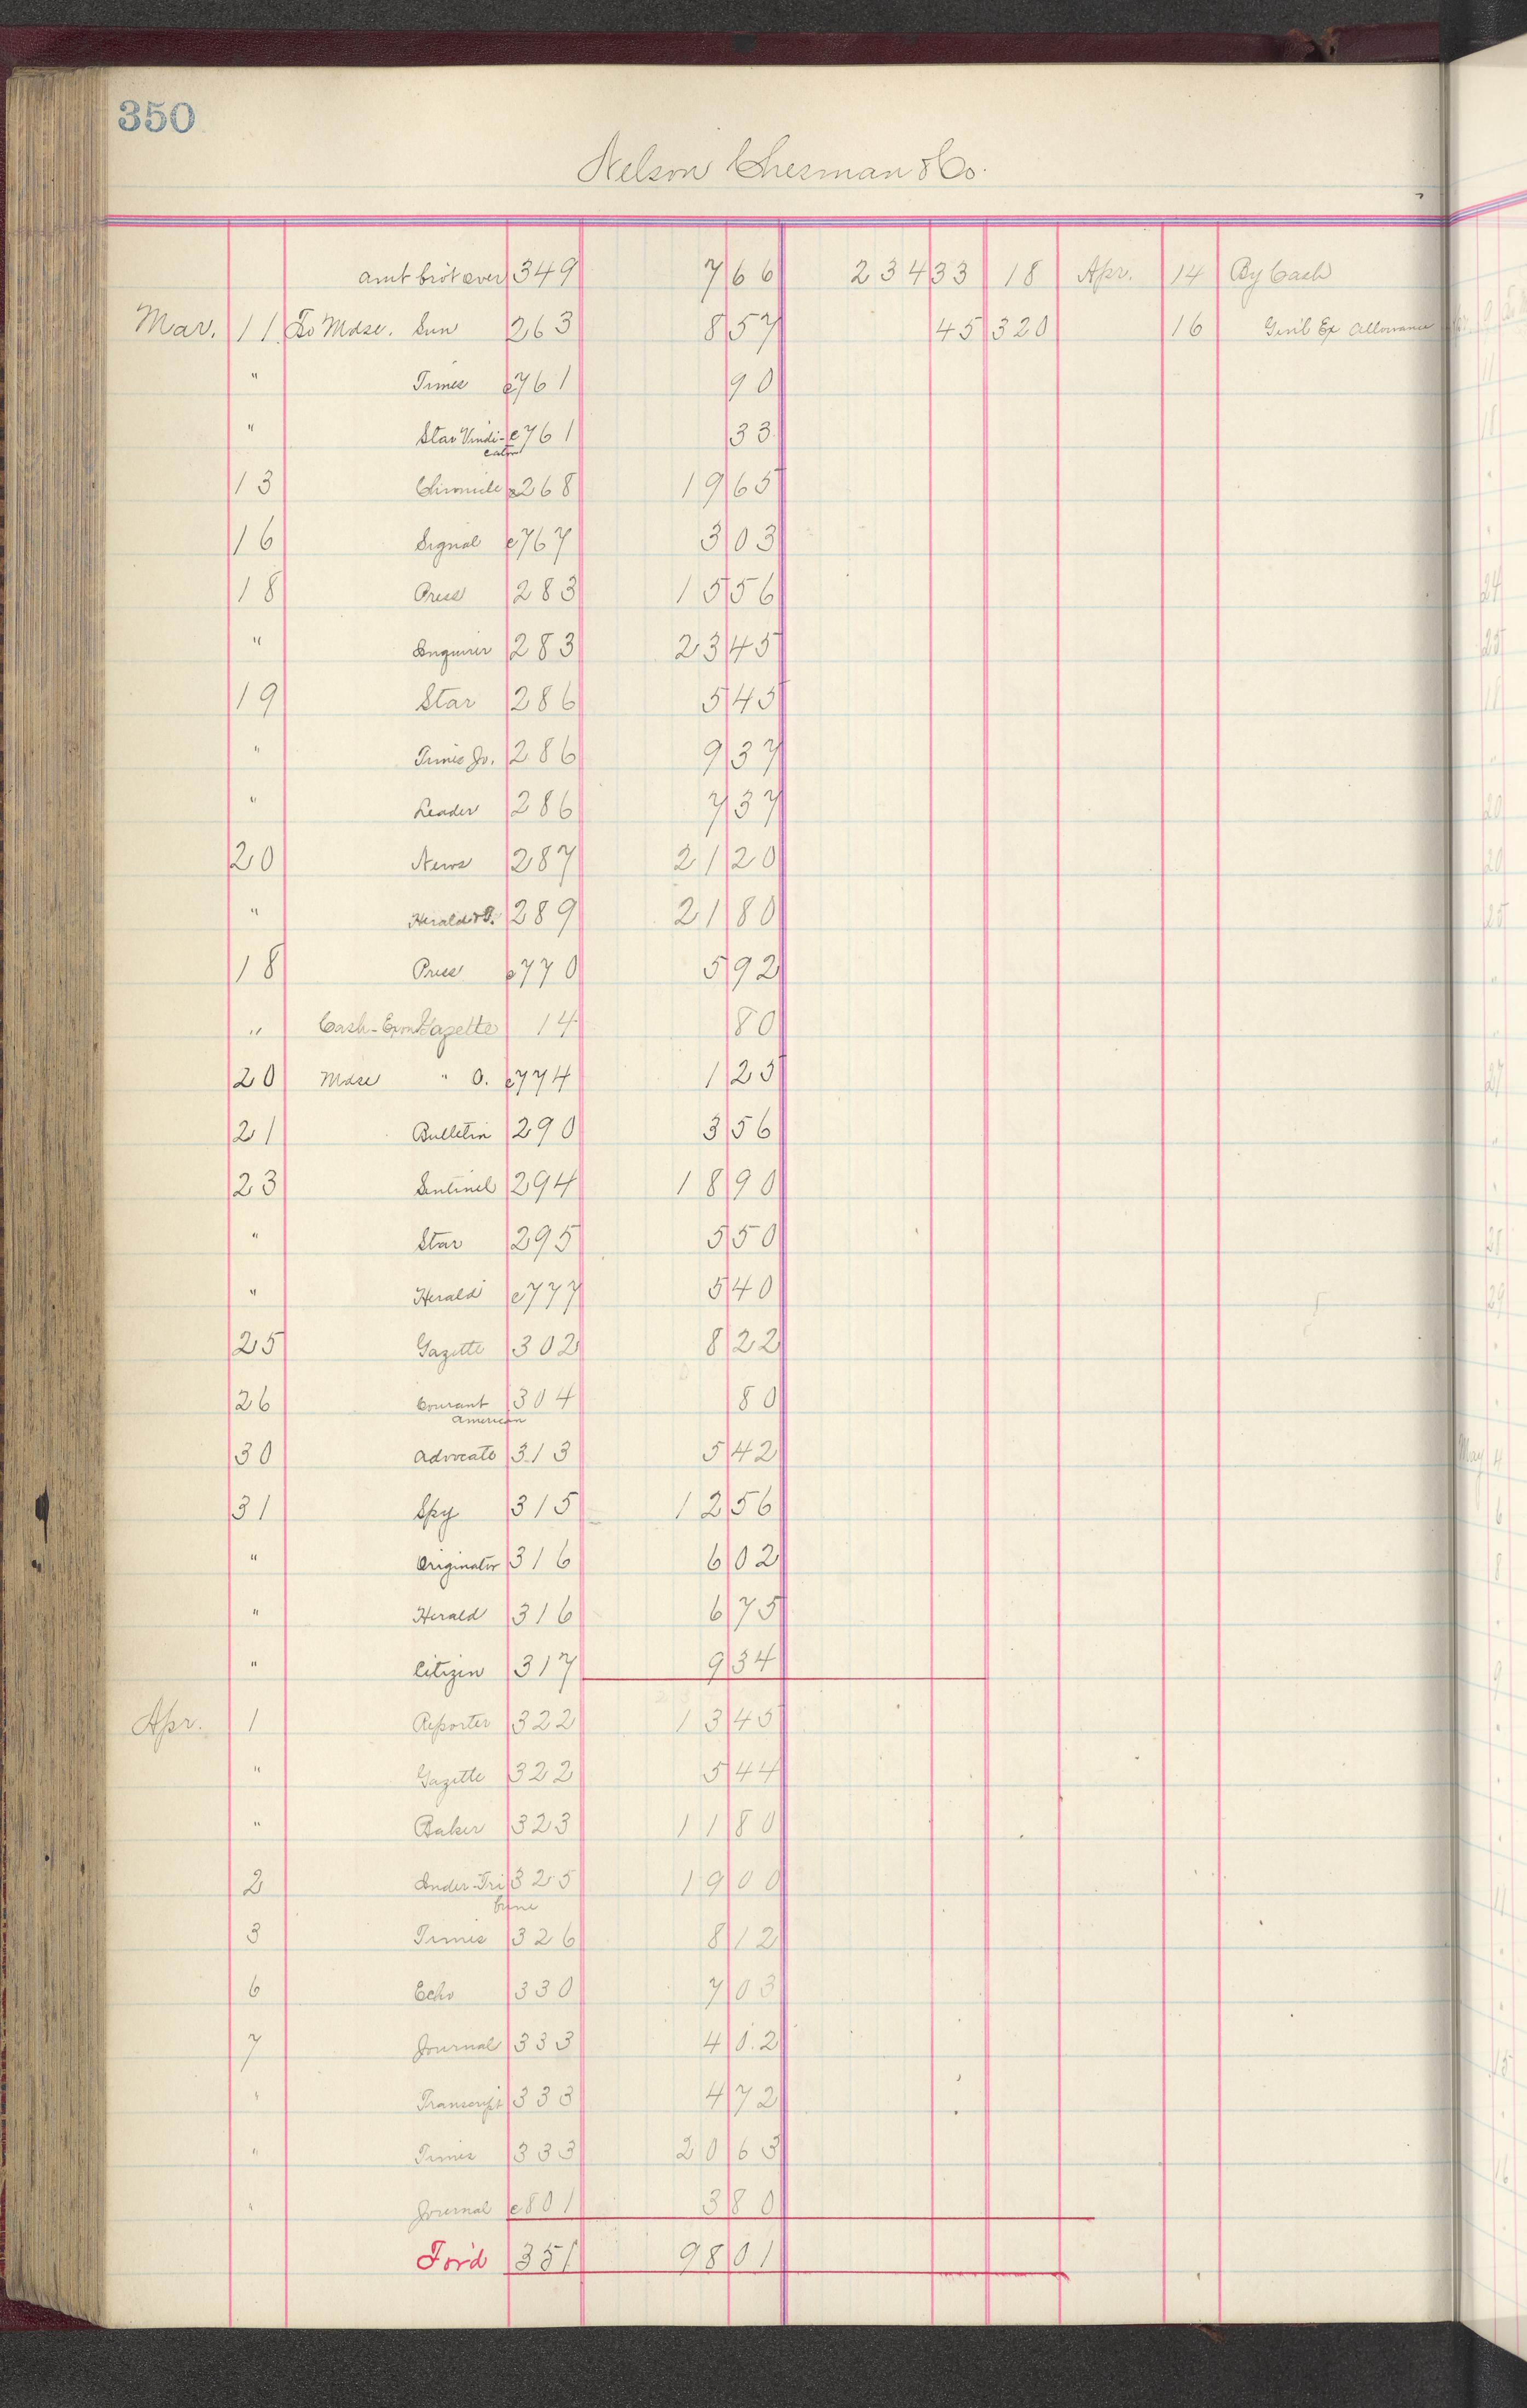 350
Nelson Chesman & Co.
amt brot over 349 7 66 234 33 18 Apr. 14 By Cash
Mar. 11 To Mdse. Sun 263 8 57 45 320 16 Gen'l Ex Allowance
" Times c761 90
" Star Vindi- c761 33
cator
13 Chronicle 268 19 65
16 Signal c767 3 03
18 Press 283 15 56
" Enquirer 283 23 45
19 Star 286 5 45
" Times Jo. 286 9 37
" Leader 286 7 37
20 News 287 21 20
" Herald & P. 289 21 80
18 Press c770 5 92
" Cash-Exon Gazette 14 80
20 Mdse " O. c774 1 25
21 Bulletin 290 3 56
23 Sentinel 294 18 90
" Star 295 5 50
" Herald c777 5 40
25 Gazette 302 8 22
26 Courant 304 80
American
30 Advocate 313 5 42
31 Spy 315 12 56
" Originator 316 6 02
" Herald 316 6 75
" Citizen 317 9 34
Apr. 1 Reporter 322 13 45
" Gazette 322 5 44
" Baker 323 11 80
2 Inder-Tri 325 19 00
bune
3 Times 326 8 12
6 Echo 330 7 03
7 Journal 333 4 02
" Transcript 333 4 72
" Times 333 20 63
" Journal c801 3 80
For'd 351 98 01